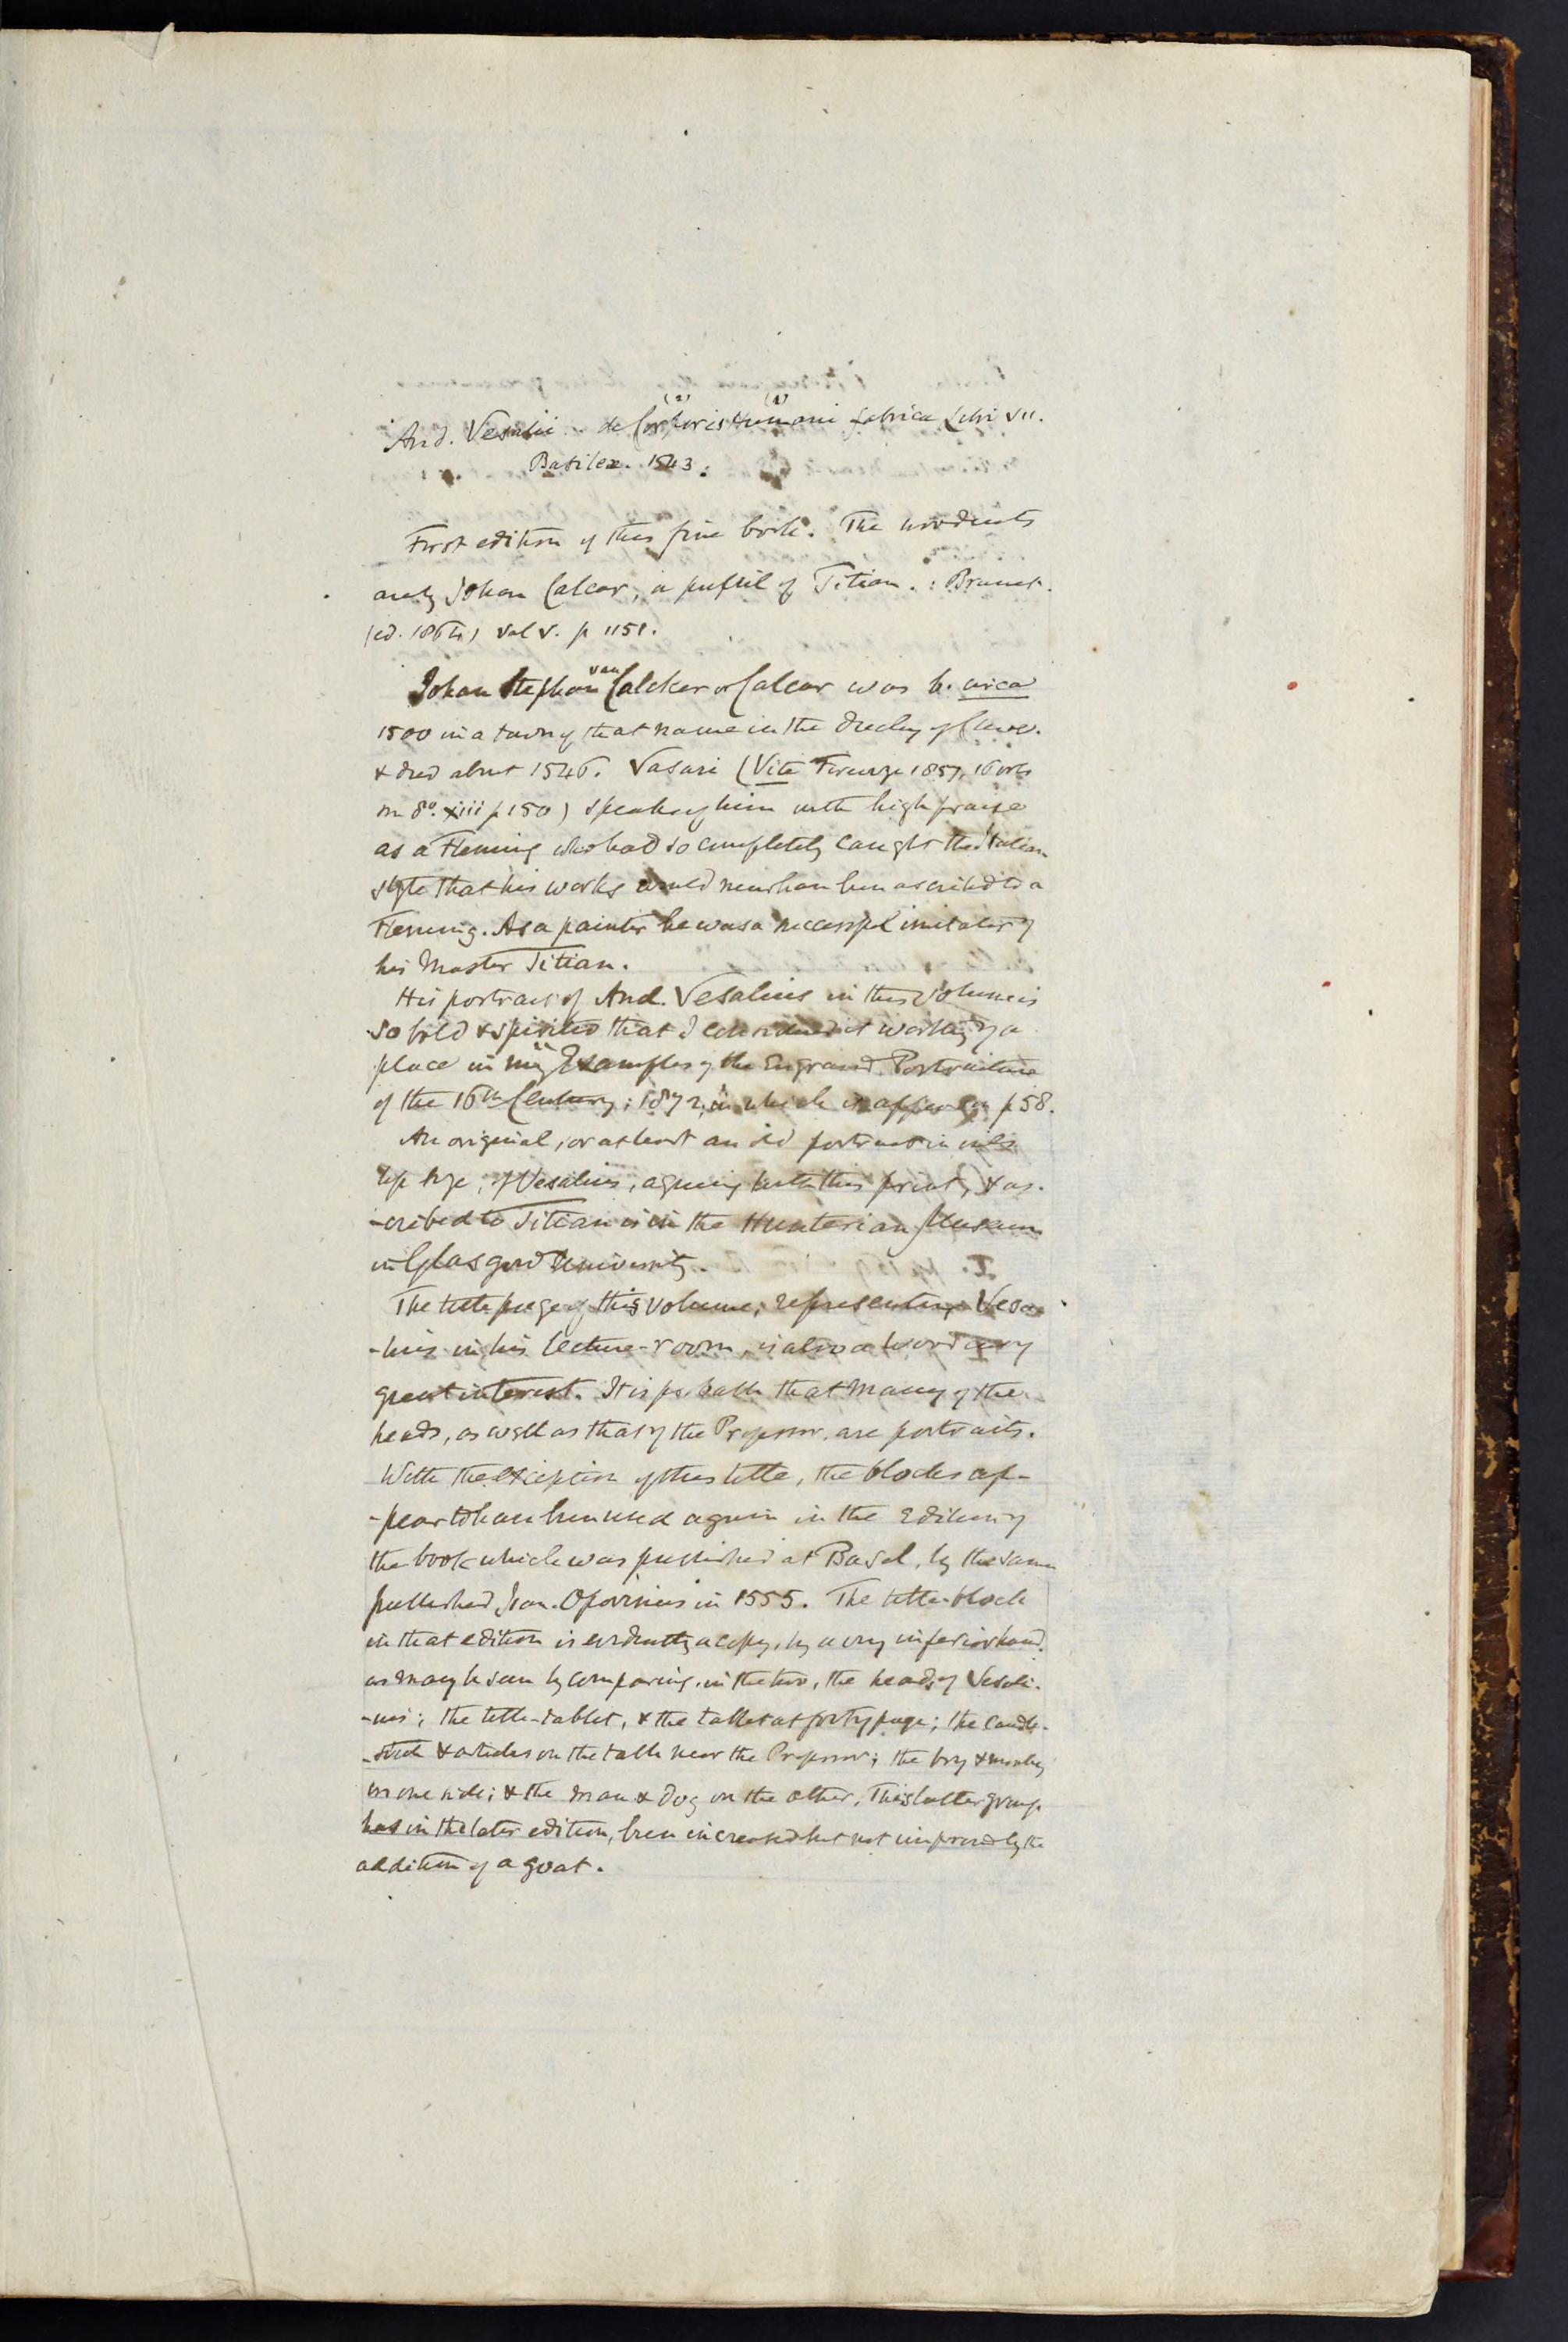 (2) (1)
And. Vesalii de Corporis Humani fabrica Libri VII.
Basileæ. 1543.
First edition of this fine book. The woodcuts
are by Johan Calcar, a pupil of Titian. : Brunet.
(ed. 1864) vol V. p 1151.
van
Johan Stephan Calcker or Calcar was b. circa
1500 in a town of that name in the Duchy of Cleve.
& died about 1546. Vasari (Vite Firenze 1857, 16 vols
sm 8º. xiii p 150) speaks of him with high praise
as a Fleming who had so completely caught the Italian
style that his works would never have been ascribed to a
Fleming. As a painter he was a successful imitator of
his Master Titian.
His portrait of And. Vesalius in this volume is
so bold & spirited that I considered it worthy of a
place in my "Examples of the Engraved Portraiture
of the 16th Century; 1872, in which it appears on p 58.
An original, or at least an old portrait in oils
life size, of Vesalius, agreeing with this print, & as-
-cribed to Titian is in the Hunterian Museum
in Glasgow University.
The title page of this volume, representing Vesa-
-lius in his lecture-room, is also a woodcut of
great interest. It is probable that many of the
heads, as well as that of the Professor, are portraits.
With the exception of this title, the blocks ap-
-pear to have been used again in the Edition of
the book which was published at Basel, by the same
published Joan. Oporinus in 1555. The title-block
in that edition is evidently a copy, by a very inferior hand,
as may be seen by comparing, in the two, the heads of Vesali-
-us; the title-tablet, & the tablet at foot of page; the candle-
-stick & articles on the table near the Professor; the boy & monkey
on one side; & the man & dog on the other. This latter group
has in the later edition, been increased but not improved by the
addition of a goat.